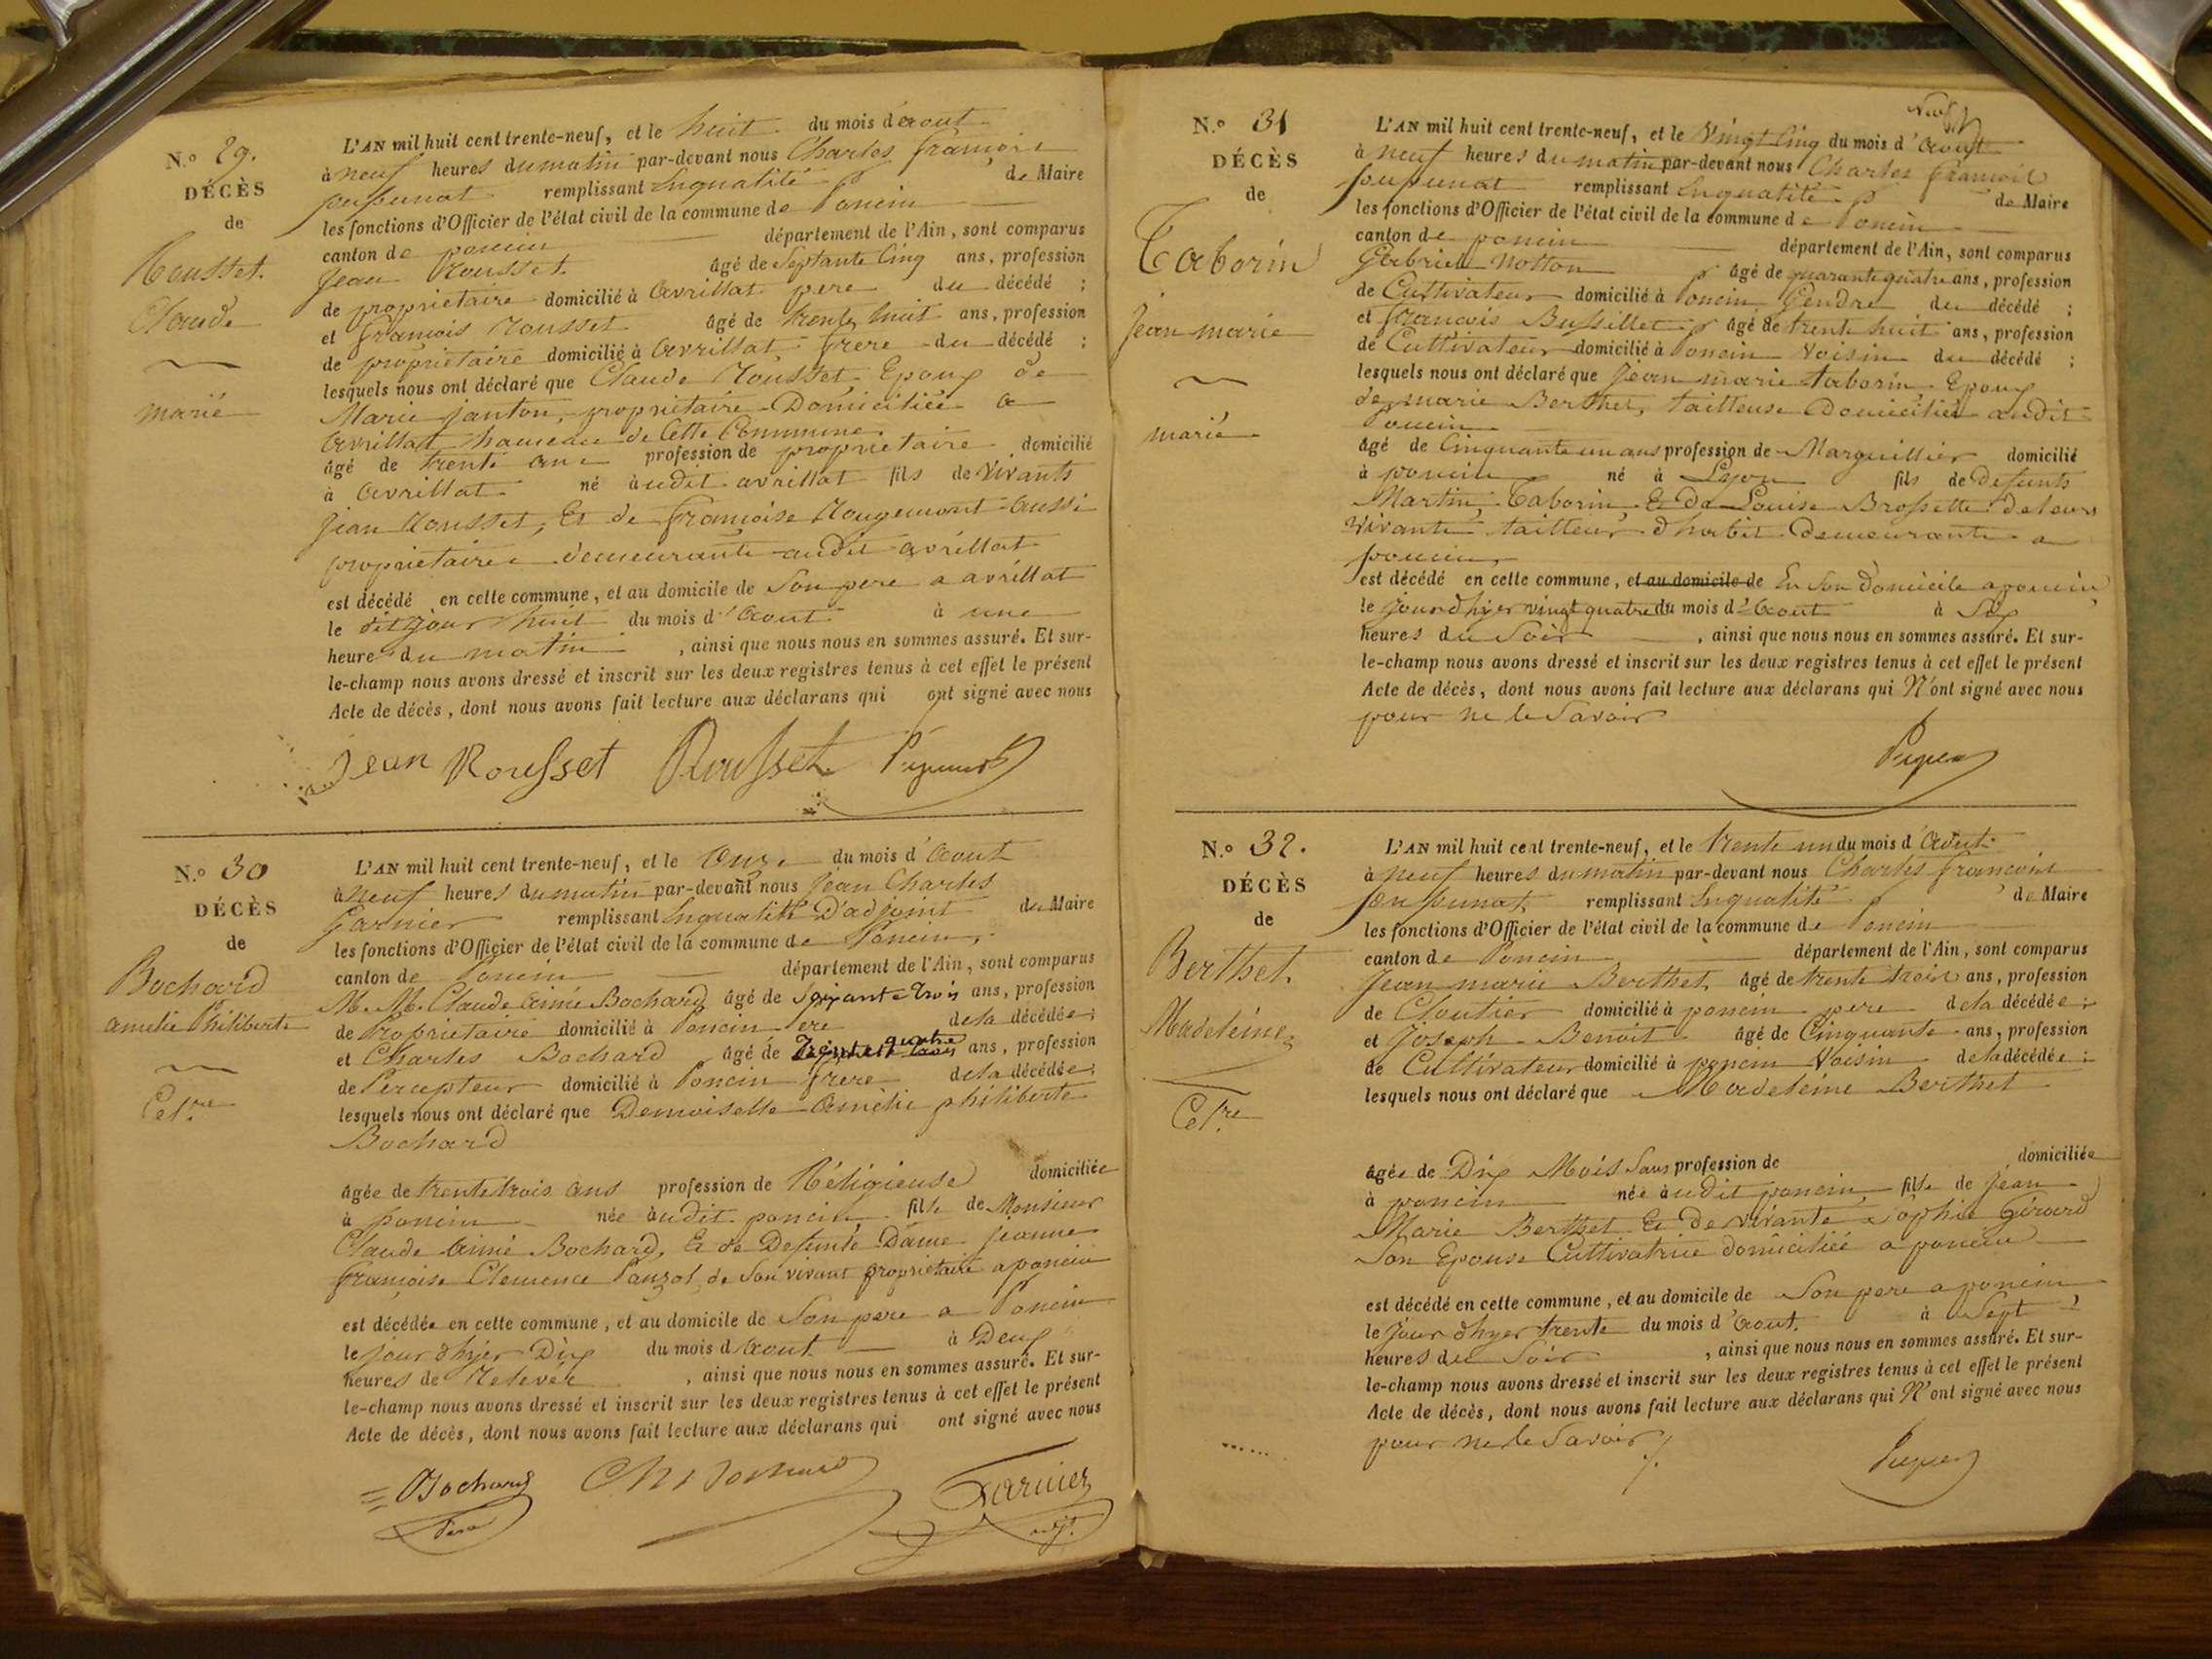 N.o 29.
DÉCÈS
de
Rousset
Claude
marié
L'AN mil huit cent trente-neuf, et le huit du mois d'aout
à neuf heures du matin par-devant nous Charles françois
pupunat remplissant Enqualité de Maire
les fonctions d'Officier de l'état civil de la commune de Poncin
canton de poncin département de l'Ain, sont comparus
Jean Rousset âgé de Septante Cinq ans, profession
de propriétaire domicilié à avrillat pere du décédé ;
et françois rousset âgé de trente huit ans, profession
de propriétaire domicilié à avrillat frere du décédé ;
lesquels nous ont déclaré que Claude Rousset, Epoux de
Marie janton, propriétaire Domiciliée a
avrillat hameau de Cette Commune
âgé de trente ans profession de propriétaire domicilié
à avrillat né audit avrillat fils de vivants
Jean Rousset, Et de françoise Rougemont aussi
propriétaires demeurants audit avrillat
est décédé en cette commune, et au domicile de Son pere a avrillat
le dit jour huit du mois d'aout à une
heure du matin , ainsi que nous nous en sommes assuré. Et sur-
le-champ nous avons dressé et inscrit sur les deux registres tenus à cet effet le présent
Acte de décès, dont nous avons fait lecture aux déclarans qui ont signé avec nous
Jean Rousset Rousset
N.o 30
DÉCÈS
de
Bochard
amelie Philiberte
Cel.re
L'AN mil huit cent trente-neuf, et le Onze du mois d'aout
à neuf heures du matin par-devant nous Jean Charles
Garnier remplissant Enqualité D'adjoint du Maire
les fonctions d'Officier de l'état civil de la commune de Poncin,
canton de Poncin département de l'Ain, sont comparus
M. M. Claude aimé Bochard âgé de Soixante trois ans, profession
de Propriétaire domicilié à Poncin Pere de la décédée ;
et Charles Bochard âgé de trente quatre ans, profession
de Percepteur domicilié à Poncin frere de la décédée ;
lesquels nous ont déclaré que Demoiselle Amélie philiberte
Bochard
âgée de trente trois ans profession de Réligieuse domiciliée
à poncin née audit poncin fille de Monsieur
Claude aimé Bochard, Et de Defunte Dame jeanne
françoise Clemence Pauzol de Son vivant propriétaire a poncin
est décédée en cette commune, et au domicile de Son pere a Poncin
le jour d'hyer Dix du mois d'aout à Deux
heures de Relevée , ainsi que nous nous en sommes assuré. Et sur-
le-champ nous avons dressé et inscrit sur les deux registres tenus à cet effet le présent
Acte de décès, dont nous avons fait lecture aux déclarans qui ont signé avec nous
Bochard Ch Bochard Garnier
Pere adjt.
N.o 31
DÉCÈS
de
Taborin
jean marie
marié
Neuf
L'AN mil huit cent trente-neuf, et le Vingt Cinq du mois d'aout
à neuf heures du matin par-devant nous Charles françois
pupunat remplissant Enqualité de Maire
les fonctions d'Officier de l'état civil de la commune de Poncin
canton de poncin département de l'Ain, sont comparus
Gabriel Notton âgé de quarante quatre ans, profession
de Cultivateur domicilié à Poncin Gendre du décédé ;
et françois Bussillet âgé de trente huit ans, profession
de Cultivateur domicilié à Poncin Voisin du décédé ;
lesquels nous ont déclaré que Jean marie taborin, Epoux
de marie Berthet, tailleuse Domiciliée audit
Poncin
âgé de Cinquante un ans profession de Marguillier domicilié
à poncin né à Lyon fils de Defunts
Martin Taborin Et de Louise Brossette de leurs
vivants tailleur d'habit demeurants a
poncin
est décédé en cette commune, et au domicile de En Son Domicile a poncin
le jour d'hyer vingt quatre du mois d'aout à Six
heures du Soir , ainsi que nous nous en sommes assuré. Et sur-
le-champ nous avons dressé et inscrit sur les deux registres tenus à cet effet le présent
Acte de décès, dont nous avons fait lecture aux déclarans qui N'ont signé avec nous
pour ne le Savoir
N.o 32.
DÉCÈS
de
Berthet
Madeleine
Cel.re
L'AN mil huit cent trente-neuf, et le trente un du mois d'aout
à neuf heures du matin par-devant nous Charles françois
pupunat remplissant Enqualité de Maire
les fonctions d'Officier de l'état civil de la commune de Poncin
canton de Poncin département de l'Ain, sont comparus
Jean marie Berthet âgé de trente trois ans, profession
de Cloutier domicilié à poncin pere de la décédée ;
et Joseph Benoit âgé de Cinquante ans, profession
de Cultivateur domicilié à poncin Voisin de la décédée ;
lesquels nous ont déclaré que Madeleine Berthet
âgée de Dix Mois Sans profession de domiciliée
à poncin née audit poncin, fille de Jean
Marie Berthet Et de vivante Sophie Girard
Son Epouse Cultivatrice domiciliée a poncin
est décédé en cette commune, et au domicile de Son pere a poncin
le jour d'hyer trente du mois d'aout à Sept
heures du Soir , ainsi que nous nous en sommes assuré. Et sur-
le-champ nous avons dressé et inscrit sur les deux registres tenus à cet effet le présent
Acte de décès, dont nous avons fait lecture aux déclarans qui N'ont signé avec nous
pour ne le Savoir